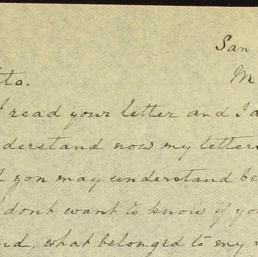 San
to.
M
I read your letter and I a
derstand now my letters
f you may understand be
dont want to know if yo
nd, what belonged to my